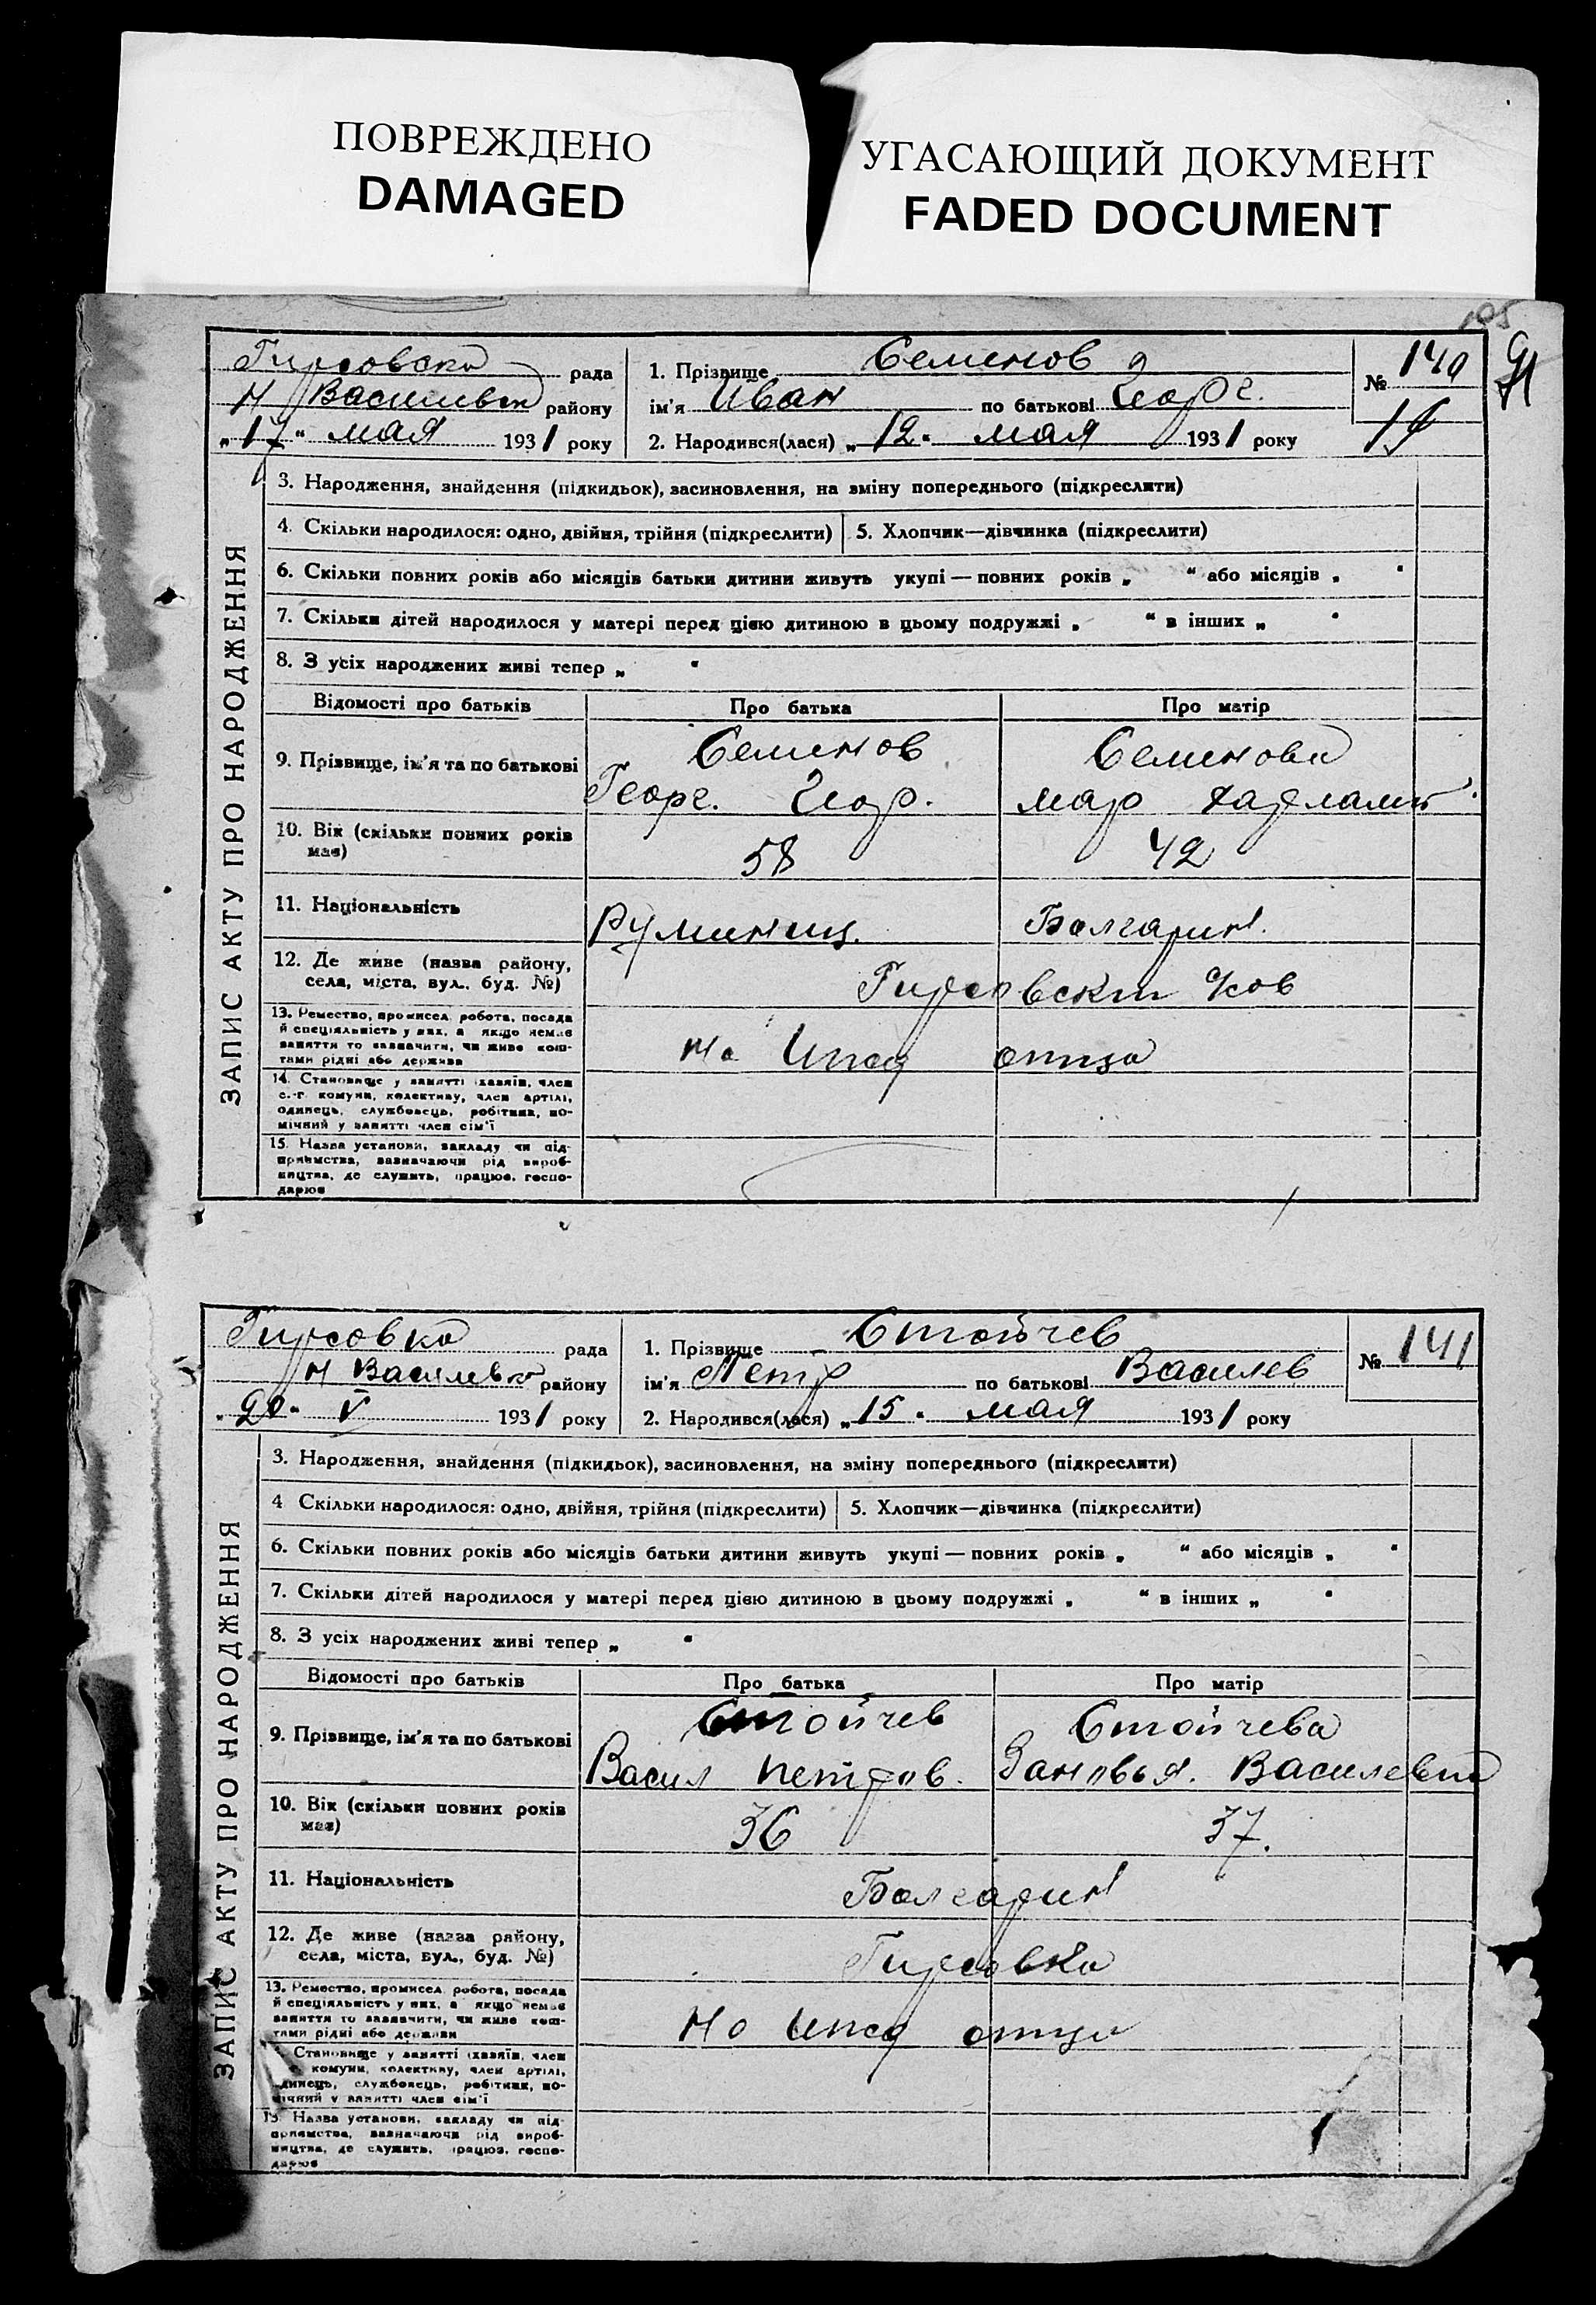 ПОВРЕЖДЕНО
DAMAGED
УГАСАЮЩИЙ ДОКУМЕНТ
FADED DOCUMENT
105
91
Гирсовска рада
Н Васильевк району
„17“ мая 1931 року
1. Прізвище Семенов
ім'я Иван по батькові Георг.
2. Народився(лася) „12“ мая 1931 року
№ 140
ЗАПИС АКТУ ПРО НАРОДЖЕННЯ
3. Народження, знайдення (підкидьок), засиновлення, на зміну попереднього (підкреслити)
4. Скільки народилося: одно, двійня, трійня (підкреслити) 5. Хлопчик—дівчинка (підкреслити)
6. Скільки повних років або місяців батьки дитини живуть укупі — повних років „ “ або місяців „ “
7. Скільки дітей народилося у матері перед цією дитиною в цьому подружжі „ “ в інших „ “
8. З усіх народжених живі тепер „ “
Відомості про батьків Про батька Про матір
9. Прізвище, ім'я та по батькові
Семенов Семенова
Георг. Геор. мар Харламт.
10. Вік (скільки повних років має)
58 42
11. Національність
Руминиц. Болгарин.
12. Де живе (назва району, села, міста, вул., буд. №)
Гирсовский
13. Ремество, промисел, робота, посада й спеціяльність у них, а якщо немає заняття то зазначити, чи живе коштами рідні або держави
На отца
14. Становище у занятті (хазяїн, член с.-г. комуни, колективу, член артілі, одинець, службовець, робітник, помічний у занятті член сім'ї
15. Назва установи, закладу чи підприємства, зазначаючи рід виробництва, де служить, працює, господарює
Гирсовка рада
Н Васильевк району
„20“ V 1931 року
1. Прізвище Стойчев
ім'я Петр по батькові Василев
2. Народився(лася) „15“ мая 1931 року
№ 141
ЗАПИС АКТУ ПРО НАРОДЖЕННЯ
3. Народження, знайдення (підкидьок), засиновлення, на зміну попереднього (підкреслити)
4 Скільки народилося: одно, двійня, трійня (підкреслити) 5. Хлопчик—дівчинка (підкреслити)
6. Скільки повних років або місяців батьки дитини живуть укупі — повних років „ “ або місяців „ “
7. Скільки дітей народилося у матері перед цією дитиною в цьому подружжі „ “ в інших „ “
8. З усіх народжених живі тепер „ “
Відомості про батьків Про батька Про матір
9. Прізвище, ім'я та по батькові
Стойчев Стойчева
Васил Петров. Зановья. Василевна
10. Вік (скільки повних років має)
36 37.
11. Національність
Болгарин
12. Де живе (назва району, села, міста, вул., буд. №)
Гирсовка
13. Ремество, промисел, робота, посада й спеціяльність у них, а якщо немає заняття то зазначити, чи живе коштами рідні або держави
На отца
Становище у занятті (хазяїн, член комуни, колективу, член артілі, одинець, службовець, робітник, помічний у занятті член сім'ї
15. Назва установи, закладу чи підприємства, зазначаючи рід виробництва, де служить, працює, господарює